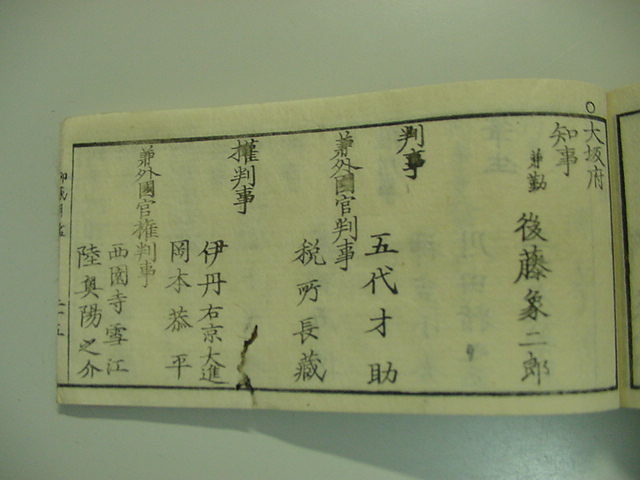 ○大坂府
知事
兼勤
後藤象二郎
判事
五代才助
兼外國官判事
税所長藏
權判事
伊丹右京大進
岡本恭平
兼外國官権判事
西園寺雪江
陸奥陽之介